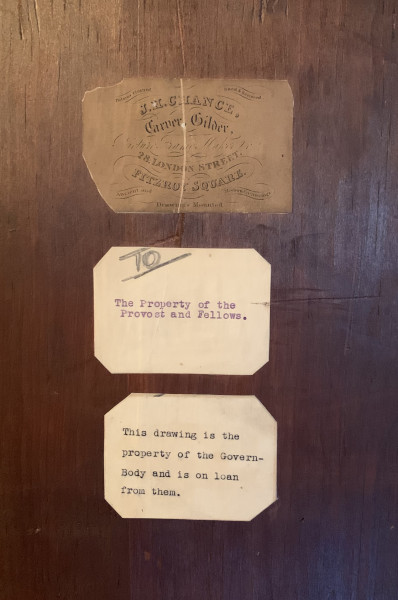 J.H. CHANCE,
Carver, Gilder,
28, LONDON STREET,
FITZROY SQUARE.
Drawings Mounted
TO
The Property of the
Provost and Fellows.
This drawing is the
property of the Govern-
Body and is on loan
from them.